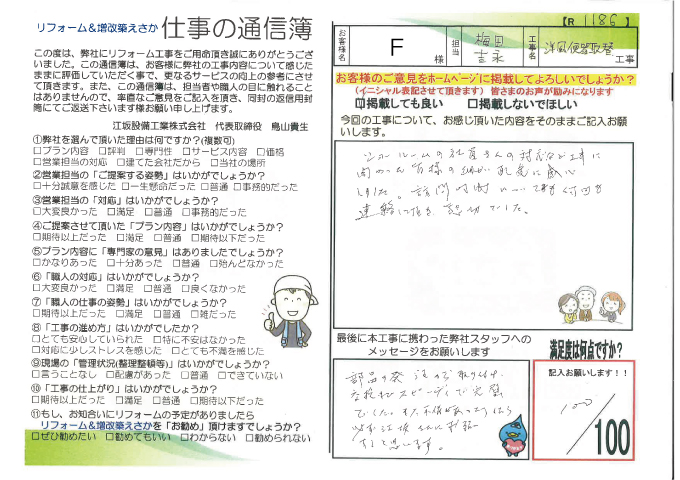 リフォーム&増改築えさか 仕事の通信簿
この度は、弊社にリフォーム工事をご用命頂き誠にありがとうござ
いました。この通信簿は、お客様に弊社の工事内容について感じた
ままに評価していただく事で、更なるサービスの向上の参考にさせ
て頂きます。また、この通信簿は、担当者や職人の目に触れること
はありませんので、率直なご意見をご記入を頂き、同封の返信用封
筒にてご返送下さいます様お願い申し上げます。
江坂設備工業株式会社 代表取締役 鳥山貴生
①弊社を選んで頂いた理由は何ですか?(複数可)
□プラン内容 □評判 □専門性 □サービス内容 □価格
□営業担当の対応 □建てた会社だから □当社の場所
②営業担当の「ご提案する姿勢」はいかがでしょうか?
□十分誠意を感じた □一生懸命だった □普通 □事務的だった
③営業担当の「対応」はいかがでしょうか?
□大変良かった □満足 □普通 □事務的だった
④ご提案させて頂いた「プラン内容」はいかがでしょうか?
□期待以上だった □満足 □普通 □期待以下だった
⑤プラン内容に「専門家の意見」はありましたでしょうか?
□かなりあった □十分あった □普通 □殆んどなかった
⑥「職人の対応」はいかがでしょうか?
□大変良かった □満足 □普通 □良くなかった
⑦「職人の仕事の姿勢」はいかがでしょうか?
□期待以上だった □満足 □普通 □雑だった
⑧「工事の進め方」はいかがでしたか?
□とても安心していられた □特に不安はなかった
□対応に少しストレスを感じた □とても不満を感じた
⑨現場の「管理状況(整理整頓等)」はいかがでしょうか?
□言うことなし □配慮があった □普通 □できていない
⑩「工事の仕上がり」はいかがでしょうか?
□期待以上だった □満足 □普通 □期待以下だった
⑪もし、お知合いにリフォームの予定がありましたら
リフォーム&増改築えさかを「お勧め」頂けますでしょうか?
□ぜひ勧めたい □勧めてもいい □わからない □勧められない
【R 1186 】
お客様名 F 様 担当 梅田 吉永 工事名 洋風便器取替 工事
お客様のご意見をホームページに掲載してよろしいでしょうか?
(イニシャル表記させて頂きます) 皆さまのお声が励みになります
□掲載しても良い □掲載しないでほしい
今回の工事について、お感じ頂いた内容をそのままご記入お願
いします。
ショールームの社員さんの対応など工事に
最後に本工事に携わった弊社スタッフへの
メッセージをお願いします
部品の発注の
満足度は何点ですか?
記入お願いします!!
100
/100